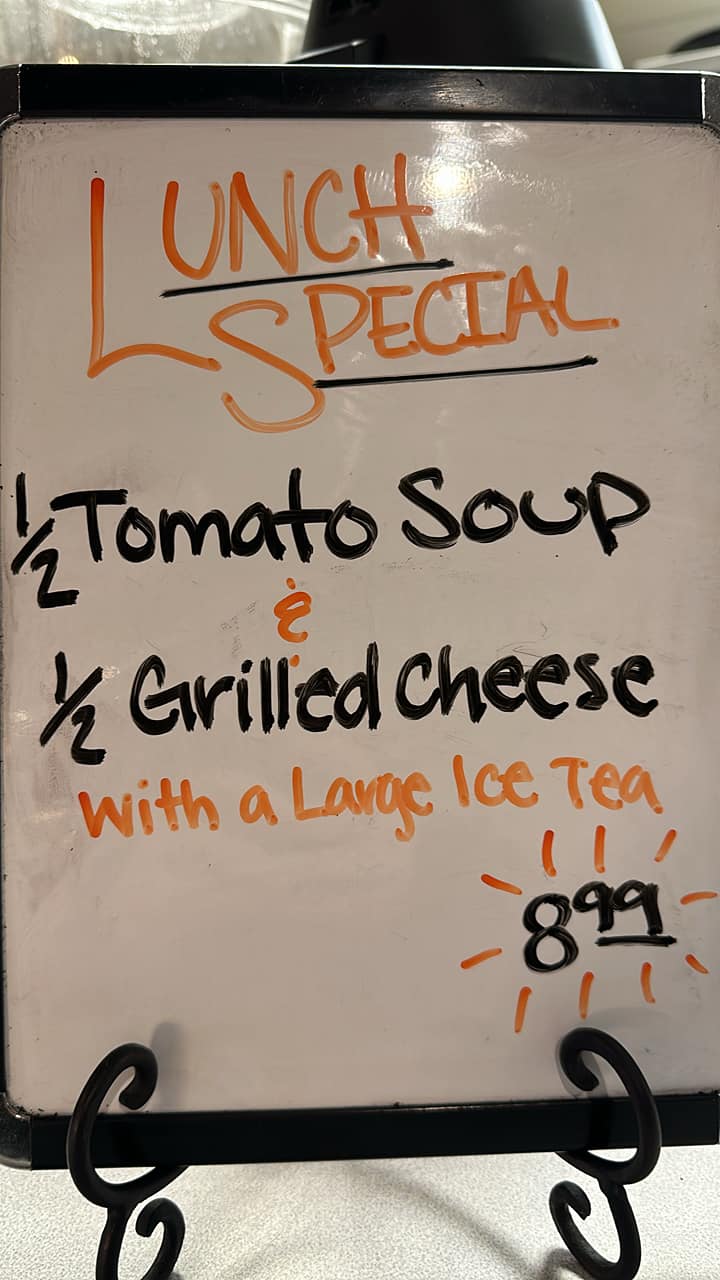 LUNCH
SPECIAL
1/2 Tomato Soup
&
1/2 Grilled Cheese
with a Large Ice Tea
8.99